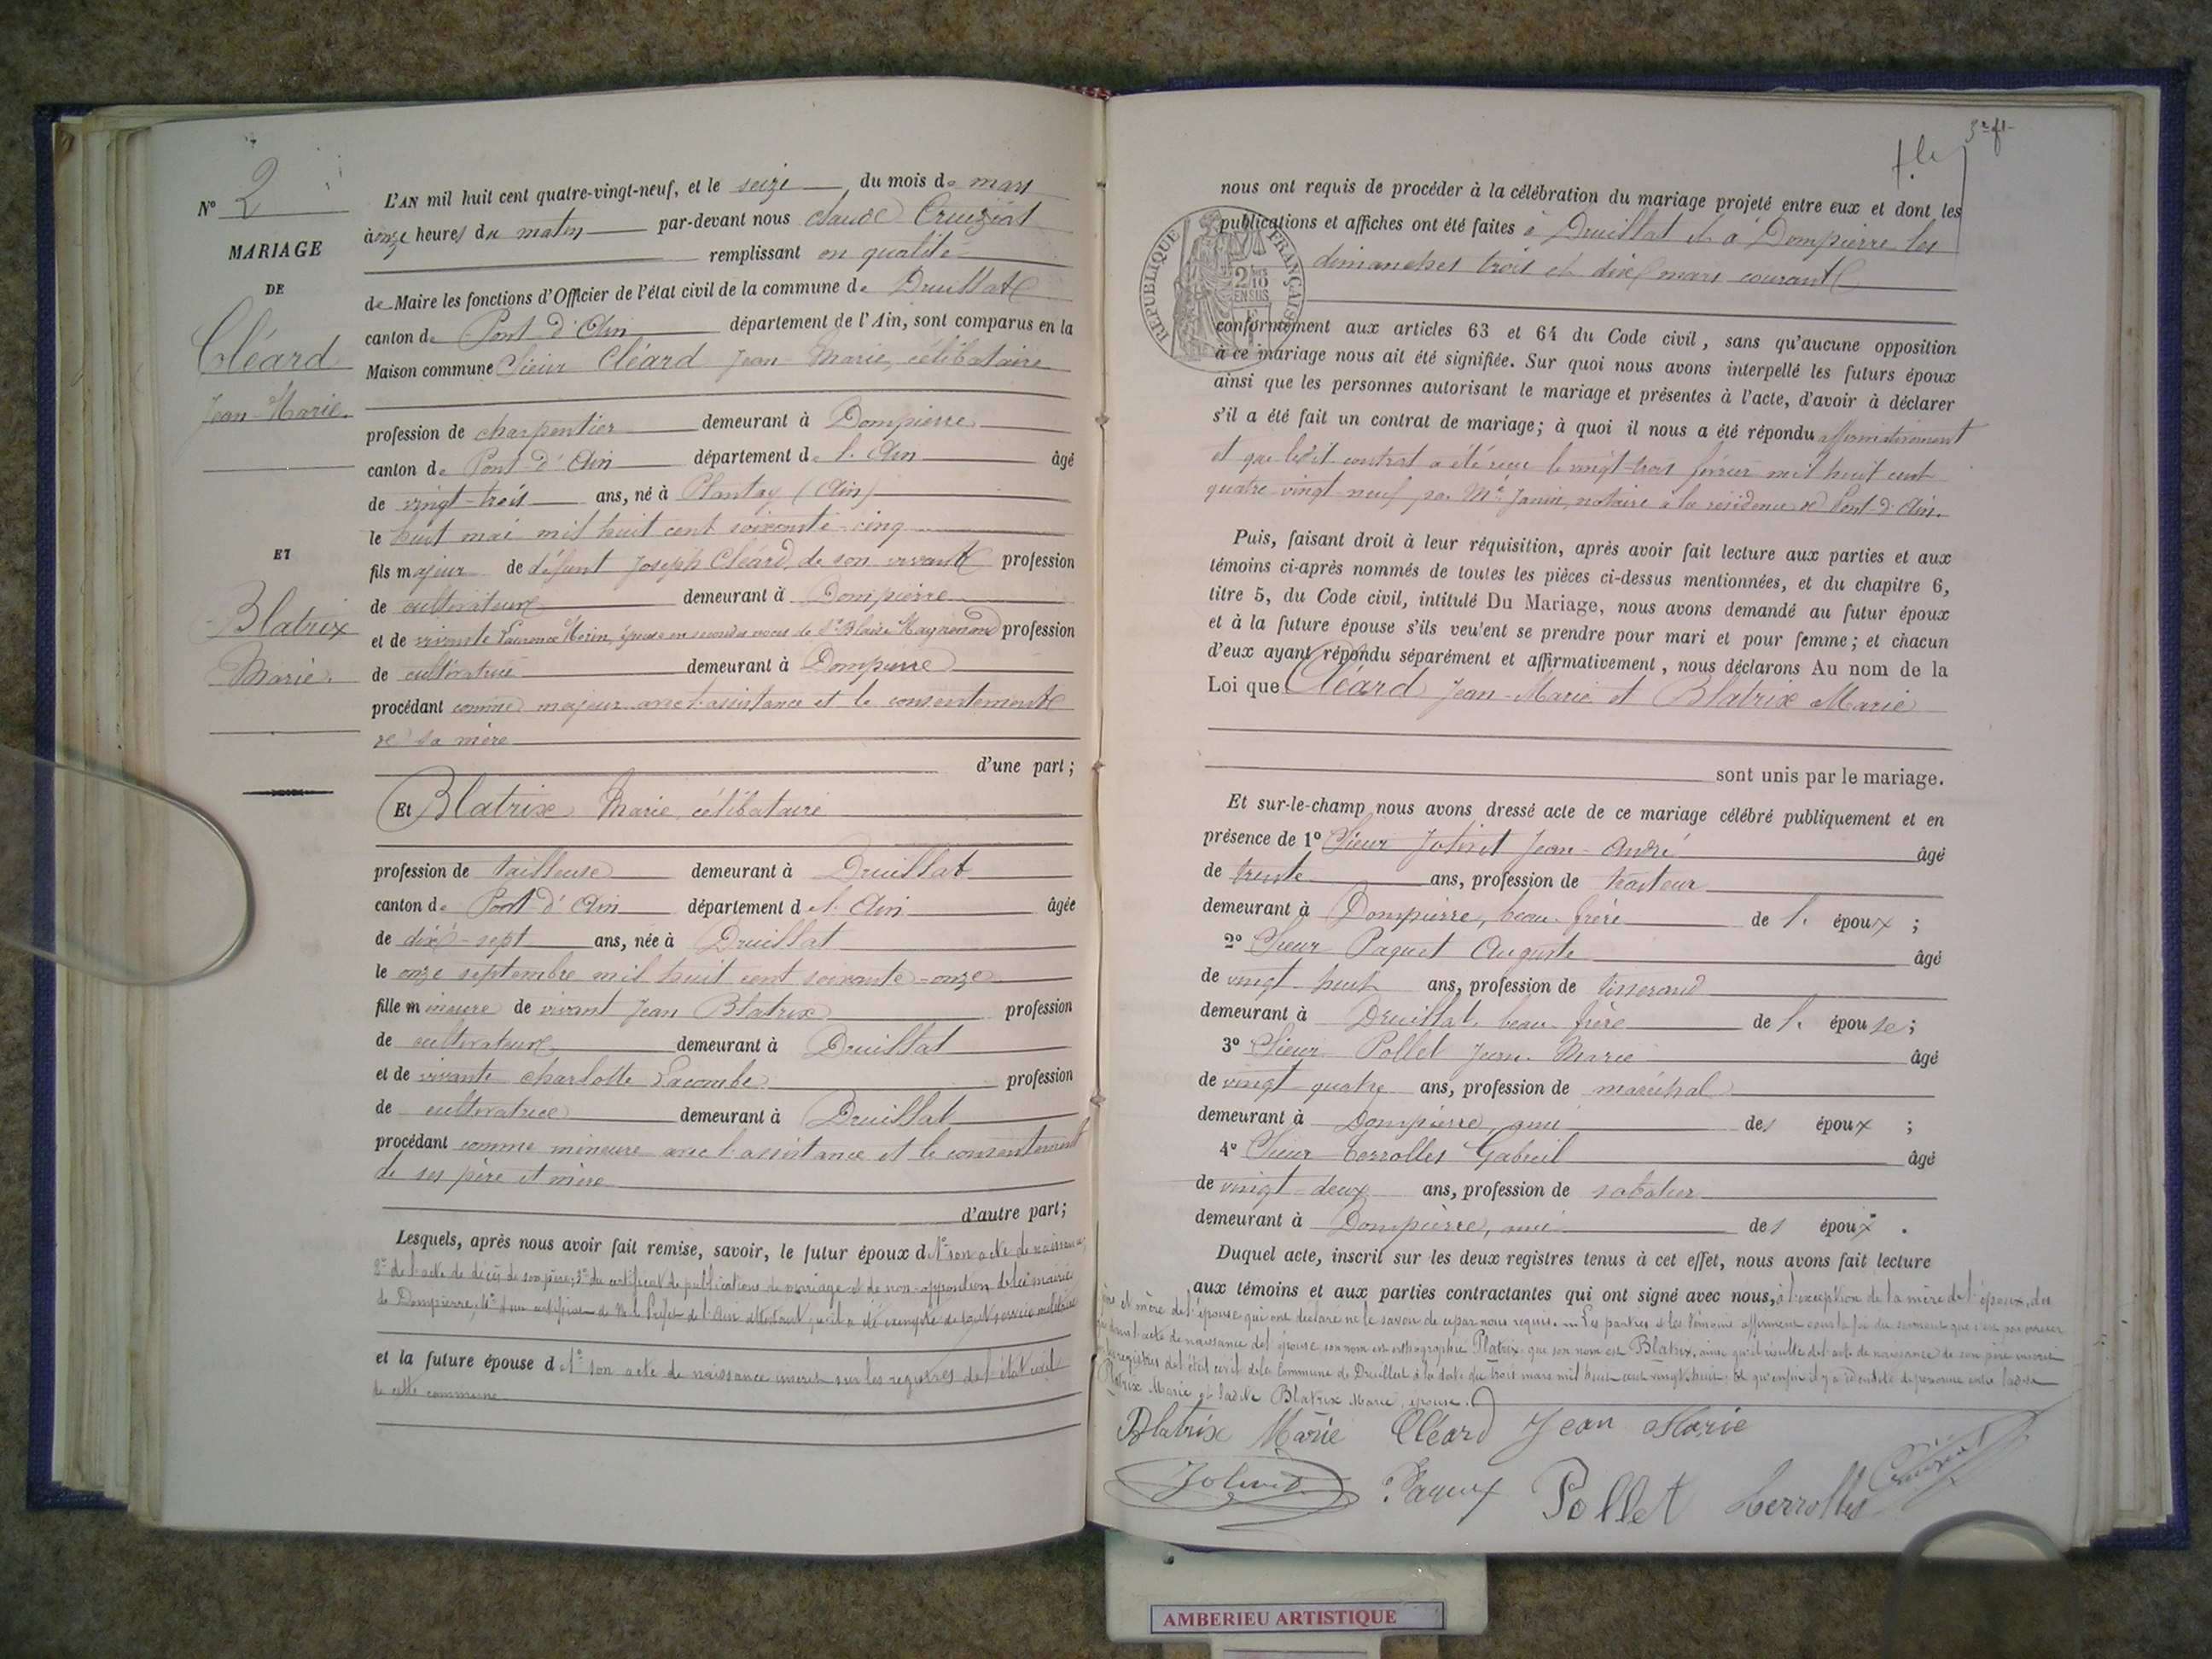 N° 2
MARIAGE
DE
Cléard
Jean-Marie.
ET
Blatrix
Marie.
L'AN mil huit cent quatre-vingt-neuf, et le seize du mois de mars
à onze heures du matin par-devant nous Claude Cruiziat
remplissant en qualité
de Maire les fonctions d'Officier de l'état civil de la commune de Druillat
canton de Pont-d'Ain département de l'Ain, sont comparus en la
Maison commune Sieur Cléard Jean-Marie, célibataire
profession de charpentier demeurant à Dompierre
canton de Pont-d'Ain département de l'Ain âgé
de vingt-trois ans, né à Plantay (Ain)
le huit mai mil huit cent soixante-cinq
fils majeur de défunt Joseph Cléard, de son vivant profession
de cultivateur demeurant à Dompierre
et de vivante Laurence Morin, épouse en secondes noces de Sr Blaise profession
de cultivatrice demeurant à Dompierre
procédant comme majeur avec l'assistance et le consentement
de sa mère
d'une part;
Et Blatrix Marie, célibataire
profession de tailleuse demeurant à Druillat
canton de Pont-d'Ain département de l'Ain âgée
de dix-sept ans, née à Druillat
le onze septembre mil huit cent soixante-onze
fille mineure de vivant Jean Blatrix profession
de cultivateur demeurant à Druillat
et de vivante Charlotte Lacombe profession
de cultivatrice demeurant à Druillat
procédant comme mineure avec l'assistance et le consentement
de ses père et mère
d'autre part;
Lesquels, après nous avoir fait remise, savoir, le futur époux d 1° son acte de naissance;
2° de l'acte de décès de son père; 3° du certificat de publications de mariage et de non-opposition de la mairie
de Dompierre; 4° d'un certificat de M. le Préfet de l'Ain attestant qu'il a été exempté de tout service militaire
et la future épouse d 1° son acte de naissance inscrit sur les registres de l'état civil
de cette commune
3e f.
RÉPUBLIQUE FRANÇAISE
nous ont requis de procéder à la célébration du mariage projeté entre eux et dont les
publications et affiches ont été faites à Druillat et à Dompierre les
dimanches trois et dix mars courant
conformément aux articles 63 et 64 du Code civil, sans qu'aucune opposition
à ce mariage nous ait été signifiée. Sur quoi nous avons interpellé les futurs époux
ainsi que les personnes autorisant le mariage et présentes à l'acte, d'avoir à déclarer
s'il a été fait un contrat de mariage; à quoi il nous a été répondu affirmativement
et que ledit contrat a été reçu le vingt-trois février mil huit cent
quatre-vingt-neuf, par Me Janin, notaire à la résidence de Pont-d'Ain.
Puis, faisant droit à leur réquisition, après avoir fait lecture aux parties et aux
témoins ci-après nommés de toutes les pièces ci-dessus mentionnées, et du chapitre 6,
titre 5, du Code civil, intitulé Du Mariage, nous avons demandé au futur époux
et à la future épouse s'ils veulent se prendre pour mari et pour femme; et chacun
d'eux ayant répondu séparément et affirmativement, nous déclarons Au nom de la
Loi que Cléard Jean-Marie et Blatrix Marie
sont unis par le mariage.
Et sur-le-champ nous avons dressé acte de ce mariage célébré publiquement et en
présence de 1° Sieur Jolivet Jean-André âgé
de trente ans, profession de traiteur
demeurant à Dompierre, beau-frère de l'époux;
2° Sieur Paquet Auguste âgé
de vingt-huit ans, profession de tisserand
demeurant à Druillat, beau-frère de l'épouse;
3° Sieur Pollet Jean-Marie âgé
de vingt-quatre ans, profession de maréchal
demeurant à Dompierre, ami des époux;
4° Sieur Terrolles Gabriel âgé
de vingt-deux ans, profession de sabotier
demeurant à Dompierre, ami des époux.
Duquel acte, inscrit sur les deux registres tenus à cet effet, nous avons fait lecture
aux témoins et aux parties contractantes qui ont signé avec nous, à l'exception de la mère de l'époux, des
père et mère de l'épouse qui ont déclaré ne le savoir de ce par nous requis. Les parties et les témoins affirment sous la foi du serment que c'est par erreur
que dans l'acte de naissance de l'épouse son nom est orthographié Platrix, que son nom est Blatrix, ainsi qu'il résulte de l'acte de naissance de son père inscrit
registres de l'état civil de la commune de Druillat à la date du trois mars mil huit cent vingt-huit. Et qu'enfin il y a identité de personne entre ladite
Platrix Marie et ladite Blatrix Marie, épouse.
Blatrix Marie Cléard Jean Marie
Jolivet Paquet Pollet Terrolles Cruiziat
AMBERIEU ARTISTIQUE